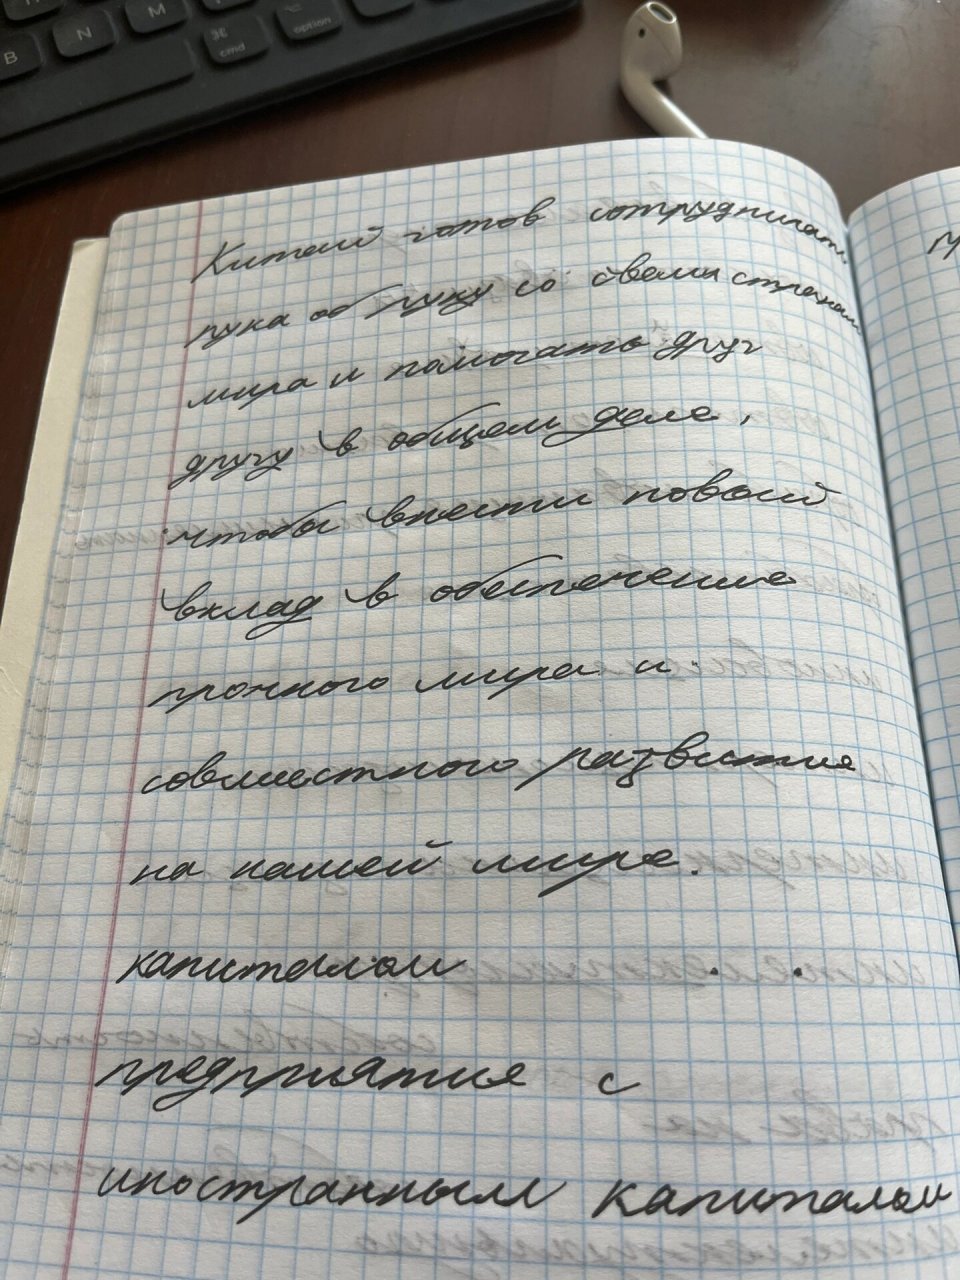 B
N
M
⌘
cmd
⌥
option
Китай готов сотрудничать
рука об руку со всеми странами
мира и помогать друг
другу в общем деле,
чтобы внести новый
вклад в обеспечение
прочного мира и
совместного развития
на нашей мире.
капиталом
предприятие с
иностранным капиталом